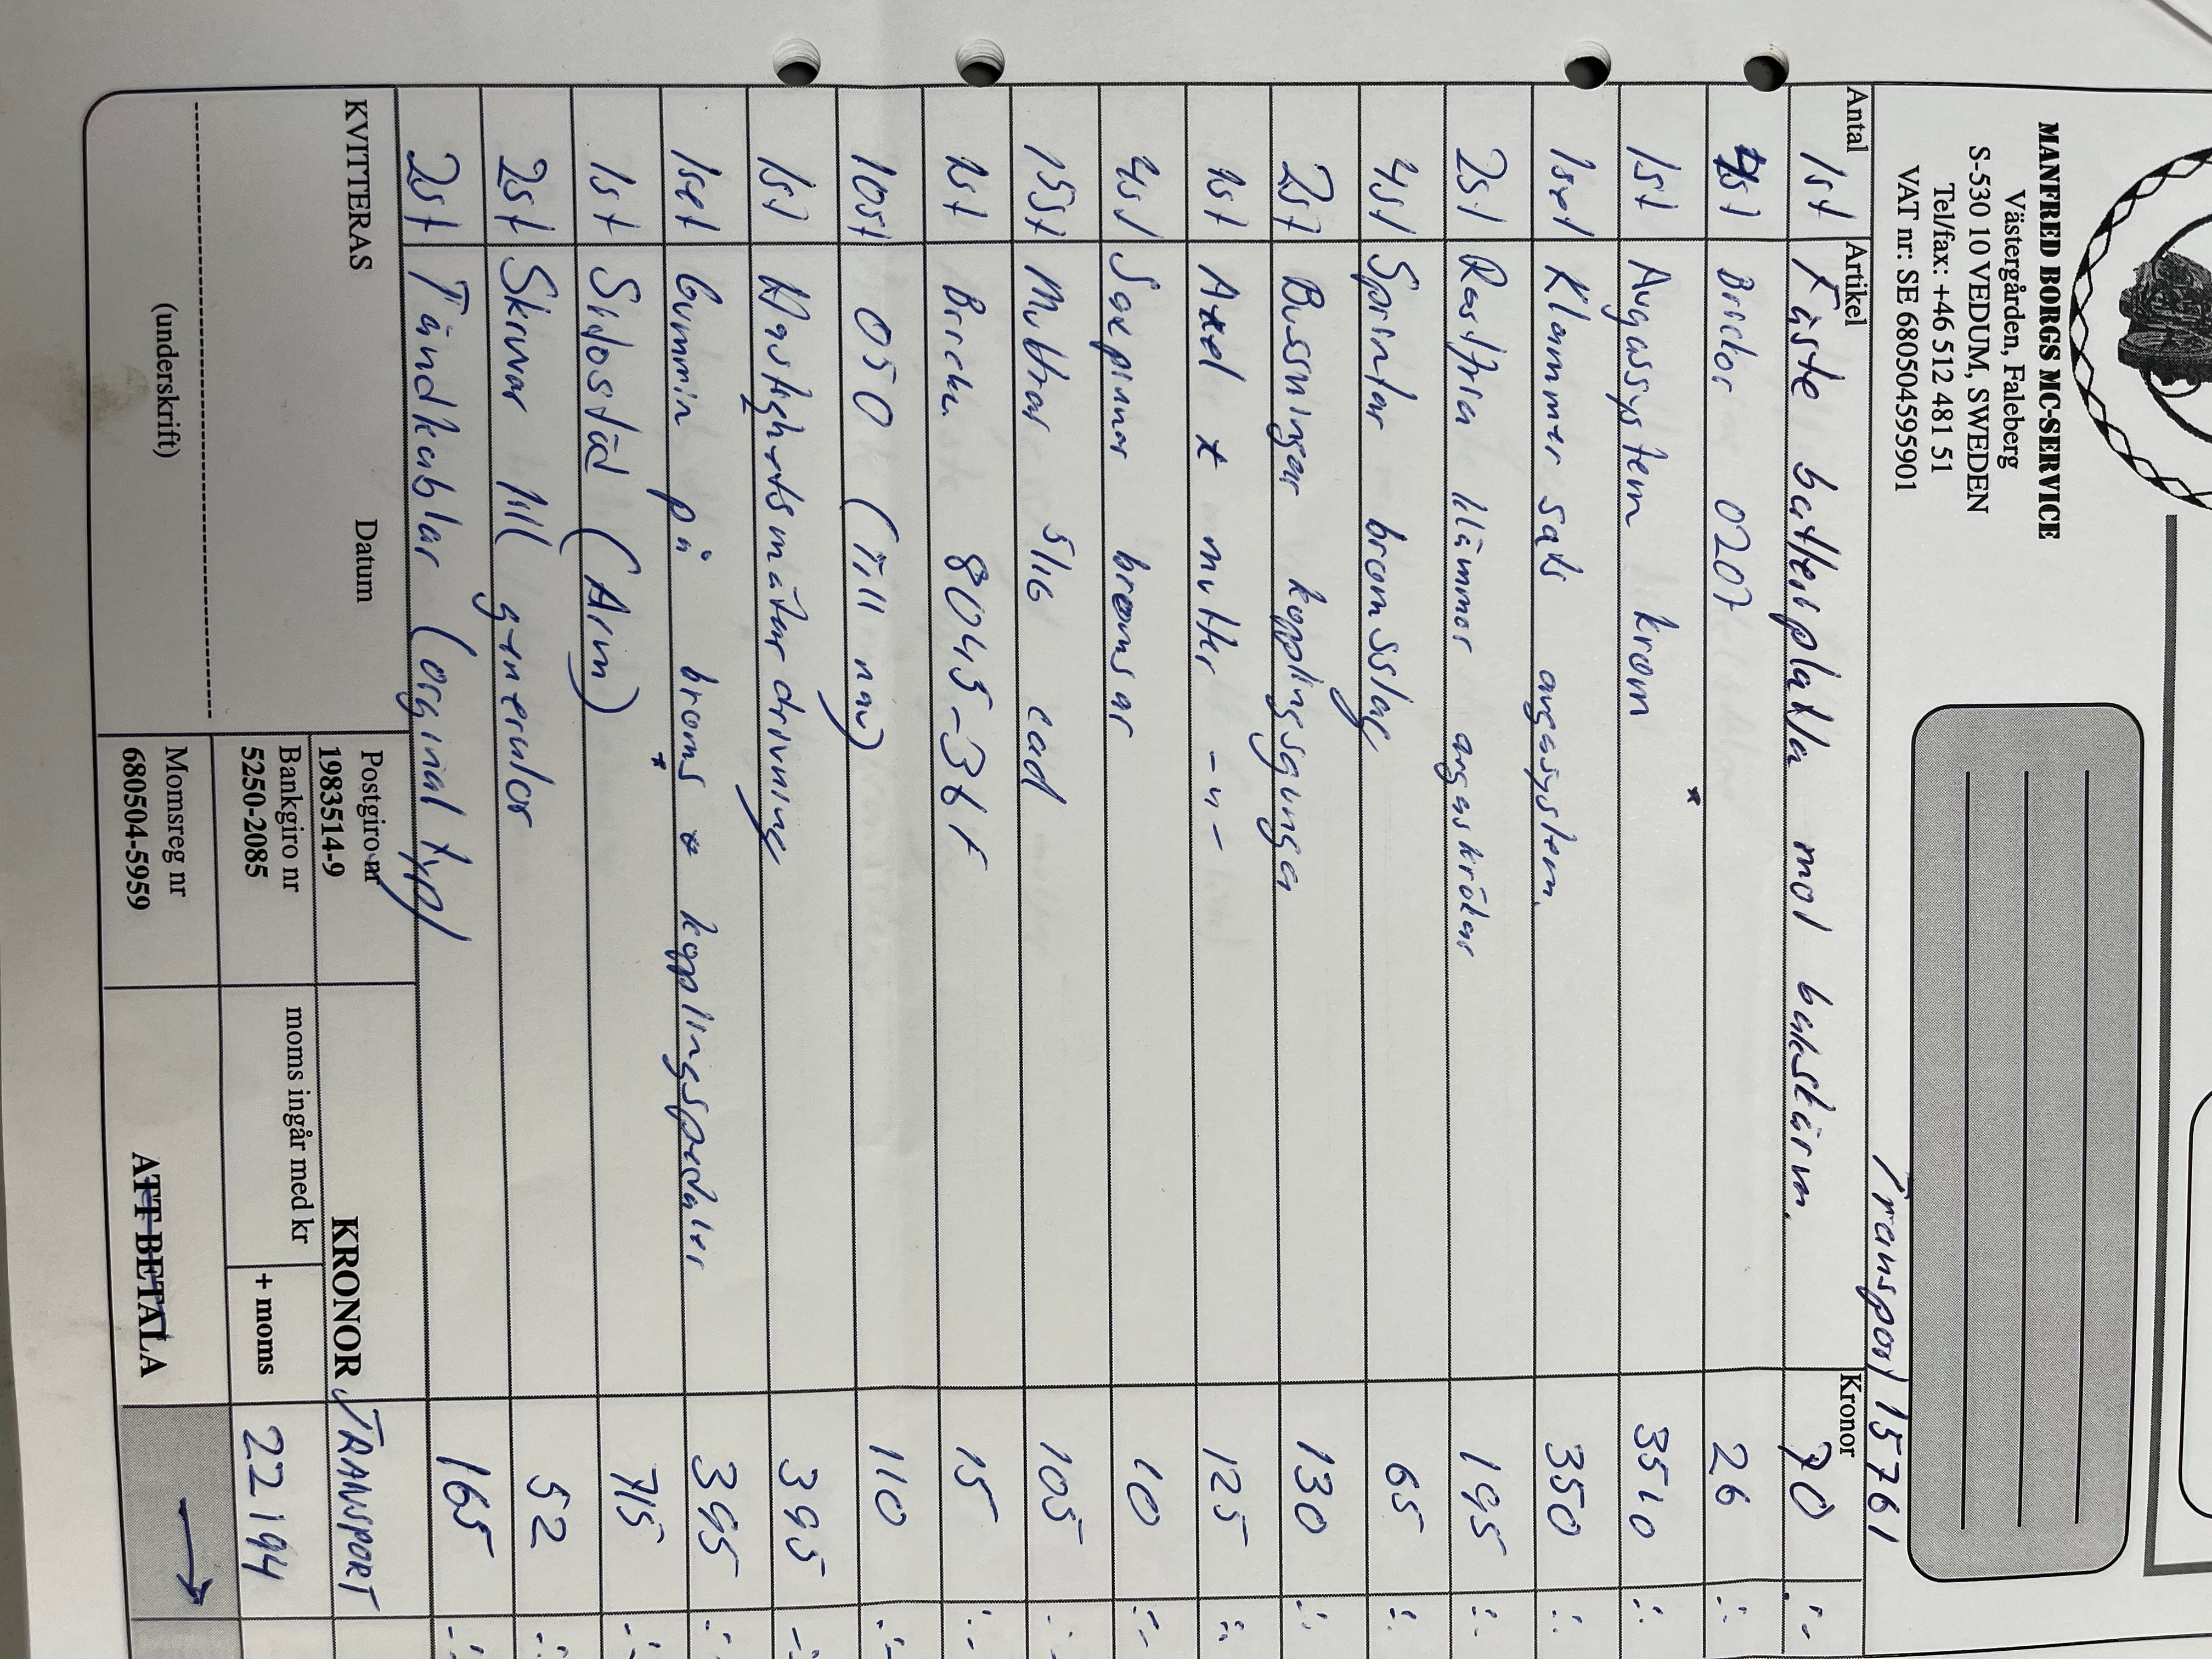 MANFRED BORGS MC-SERVICE
Västergården, Faleberg
S-530 10 VEDUM, SWEDEN
Tel/fax: +46 512 481 51
VAT nr: SE 680504595901
Transport 15761
Antal Artikel Kronor
1st Fäste batteriplåtla mot bakskärm. 70 :-
4st Brickor 0207 26 :-
1st Avgassystem krom 3510 :-
1set Klammer sats avgassystem. 350 :-
2st Rostfria klämmor avgaskrökar 195 :-
4st Sprintar bromsstag 65 :-
2st Bussningar kopplingsgunga 130 :-
1st Axel + mutter -"- 125 :-
4st Saxpinnar bromsar 10 :-
15st Muttrar 5/16 cad 105 :-
1st Brick. 8043-36F 15 :-
10st 050 (Till nav) 110 :-
1st Hastighetsmätardrivning 395 :-
1set Gummin på broms + kopplingspedaler 395 :-
1st Sidostöd (Arm) 715 :-
2st Skruvar till generator 52 :-
2st Tändkablar (orginal typ) 165 :-
KVITTERAS Datum Postgiro nr KRONOR TRANSPORT
1983514-9
Bankgiro nr moms ingår med kr + moms 22194
5250-2085
(underskrift) Momsreg nr ATT BETALA
680504-5959